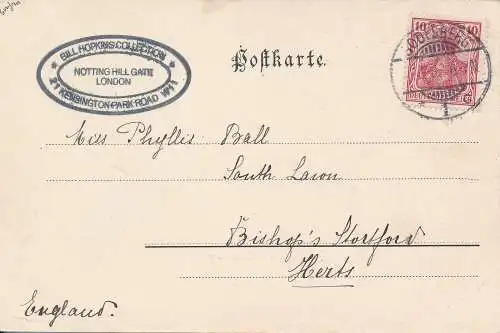 BILL HOPKINS COLLECTION
NOTTING HILL GATE
LONDON
21 KENSINGTON PARK ROAD W11
Postkarte.
10 10
Miss Phyllis Ball
South Lawn
Bishop's Stortford
Herts
England.